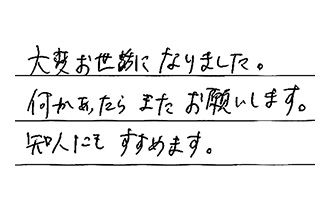 大変お世話になりました。
何かあったら またお願いします。
知人にも すすめます。